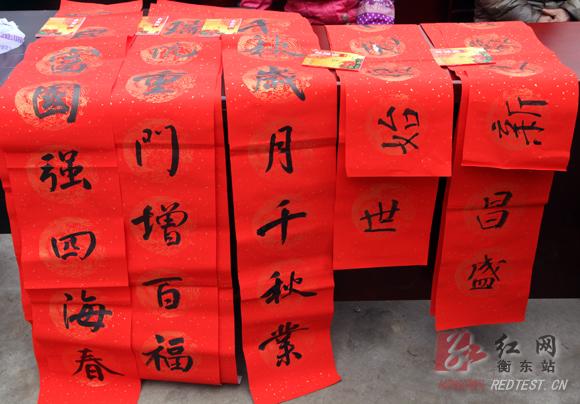 富国强四海春
重門增百福
千秋歲月千秋業
始
世
新
昌盛
红网
衡东站
REDTEST.CN